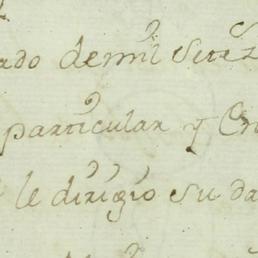 ado demil Setez
particular y En
le dirigio su da